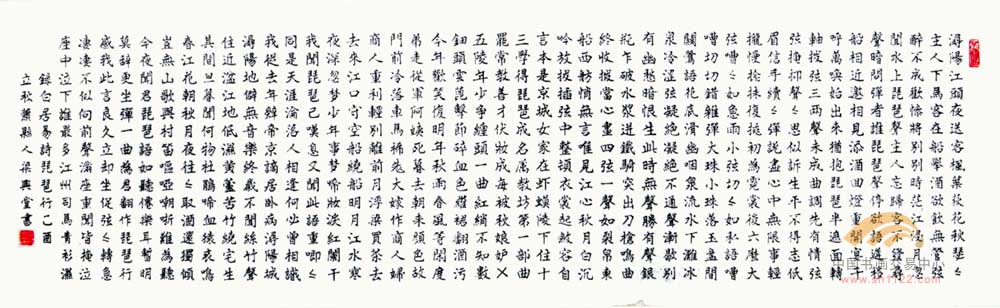 潯陽江頭夜送客楓葉荻花秋瑟〻
主人下馬客在船舉酒欲飲無管弦
醉不成歡慘將別別時茫江浸月忽
聞水上琵琶聲主人忘歸客不發尋
聲暗問彈者誰琵琶聲停欲語遲移
船相近邀相見添酒回燈重開宴千
呼萬喚始出來猶抱琵琶半遮面轉
軸撥弦三兩聲未成曲調先有情弦
弦掩抑聲〻思似訴生平不得志低
眉信手續〻彈說盡心中無限事輕
攏慢撚抹復挑初為霓裳後六么大
弦嘈〻如急雨小弦切〻如私語嘈
嘈切切錯雜彈大珠小珠落玉盤間
關鶯語花底滑幽咽泉流水下灘冰
泉冷澀弦凝絕凝絕不通聲漸歇別
有幽愁暗恨生此時無聲勝有聲銀
瓶乍破水漿迸鐵騎突出刀槍鳴曲
終收撥當心畫四弦一聲如裂帛東
船西舫悄無言惟見江心秋月白沉
吟放撥插弦中整頓衣裳起斂容自
言本是京城女家在蝦蟆陵下住十
三學得琵琶成名屬教坊第一部曲
罷常教善才伏妝成每被秋娘妒
五陵年少爭纏頭一曲紅綃不知數
鈿頭雲篦擊節碎血色羅裙翻酒污
今年歡笑復明年秋月春風等閒度
弟走從軍阿姨死暮去朝來顏色故
門前冷落車馬稀老大嫁作商人婦
商人重利輕離別前月浮梁買茶去
去來江口守空船繞船明月江水寒
夜深忽夢少年事夢啼妝淚紅闌干
我聞琵琶已嘆息又聞此語重唧〻
同是天涯淪落人相逢何必曾相識
我從去年辭帝京謫居臥病潯陽城
潯陽地僻無音樂終歲不聞絲竹聲
住近湓江地低濕黃蘆苦竹繞宅生
其間旦暮聞何物杜鵑啼血猿哀鳴
春江花朝秋月夜往〻取酒還獨傾
豈無山歌與村笛嘔啞嘲哳難為聽
今夜聞君琵琶語如聽僊樂耳暫明
莫辭更坐彈一曲為君翻作琵琶行
感我此言良久立却坐促弦〻轉急
凄凄不似向前聲滿座重聞皆掩泣
座中泣下誰最多江州司馬青衫濕
錄白居易詩琵琶行乙酉
立秋蕭縣人梁興堂書
中国书画交易中心